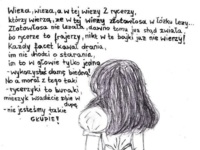 Wieża, wieża, a w tej wieży 2 rycerzy,
którzy wierzą, że w tej wieży złotowłosa w łóżku leży...
Złotowłosa nie czekała, dawno temu już stąd zwiała
bo rycerze to frajerzy, nikt w te bajki już nie wierzy!
Każdy facet kawał drania,
im nie chodzi o starania,
im to w głowie tylko jedno
-wykorzystać damę biedną!
No a morał z tego taki
-rycerzyki to buraki,
mieczyk wsadźcie sobie w dupę
-nie jesteśmy takie
GŁUPIE!